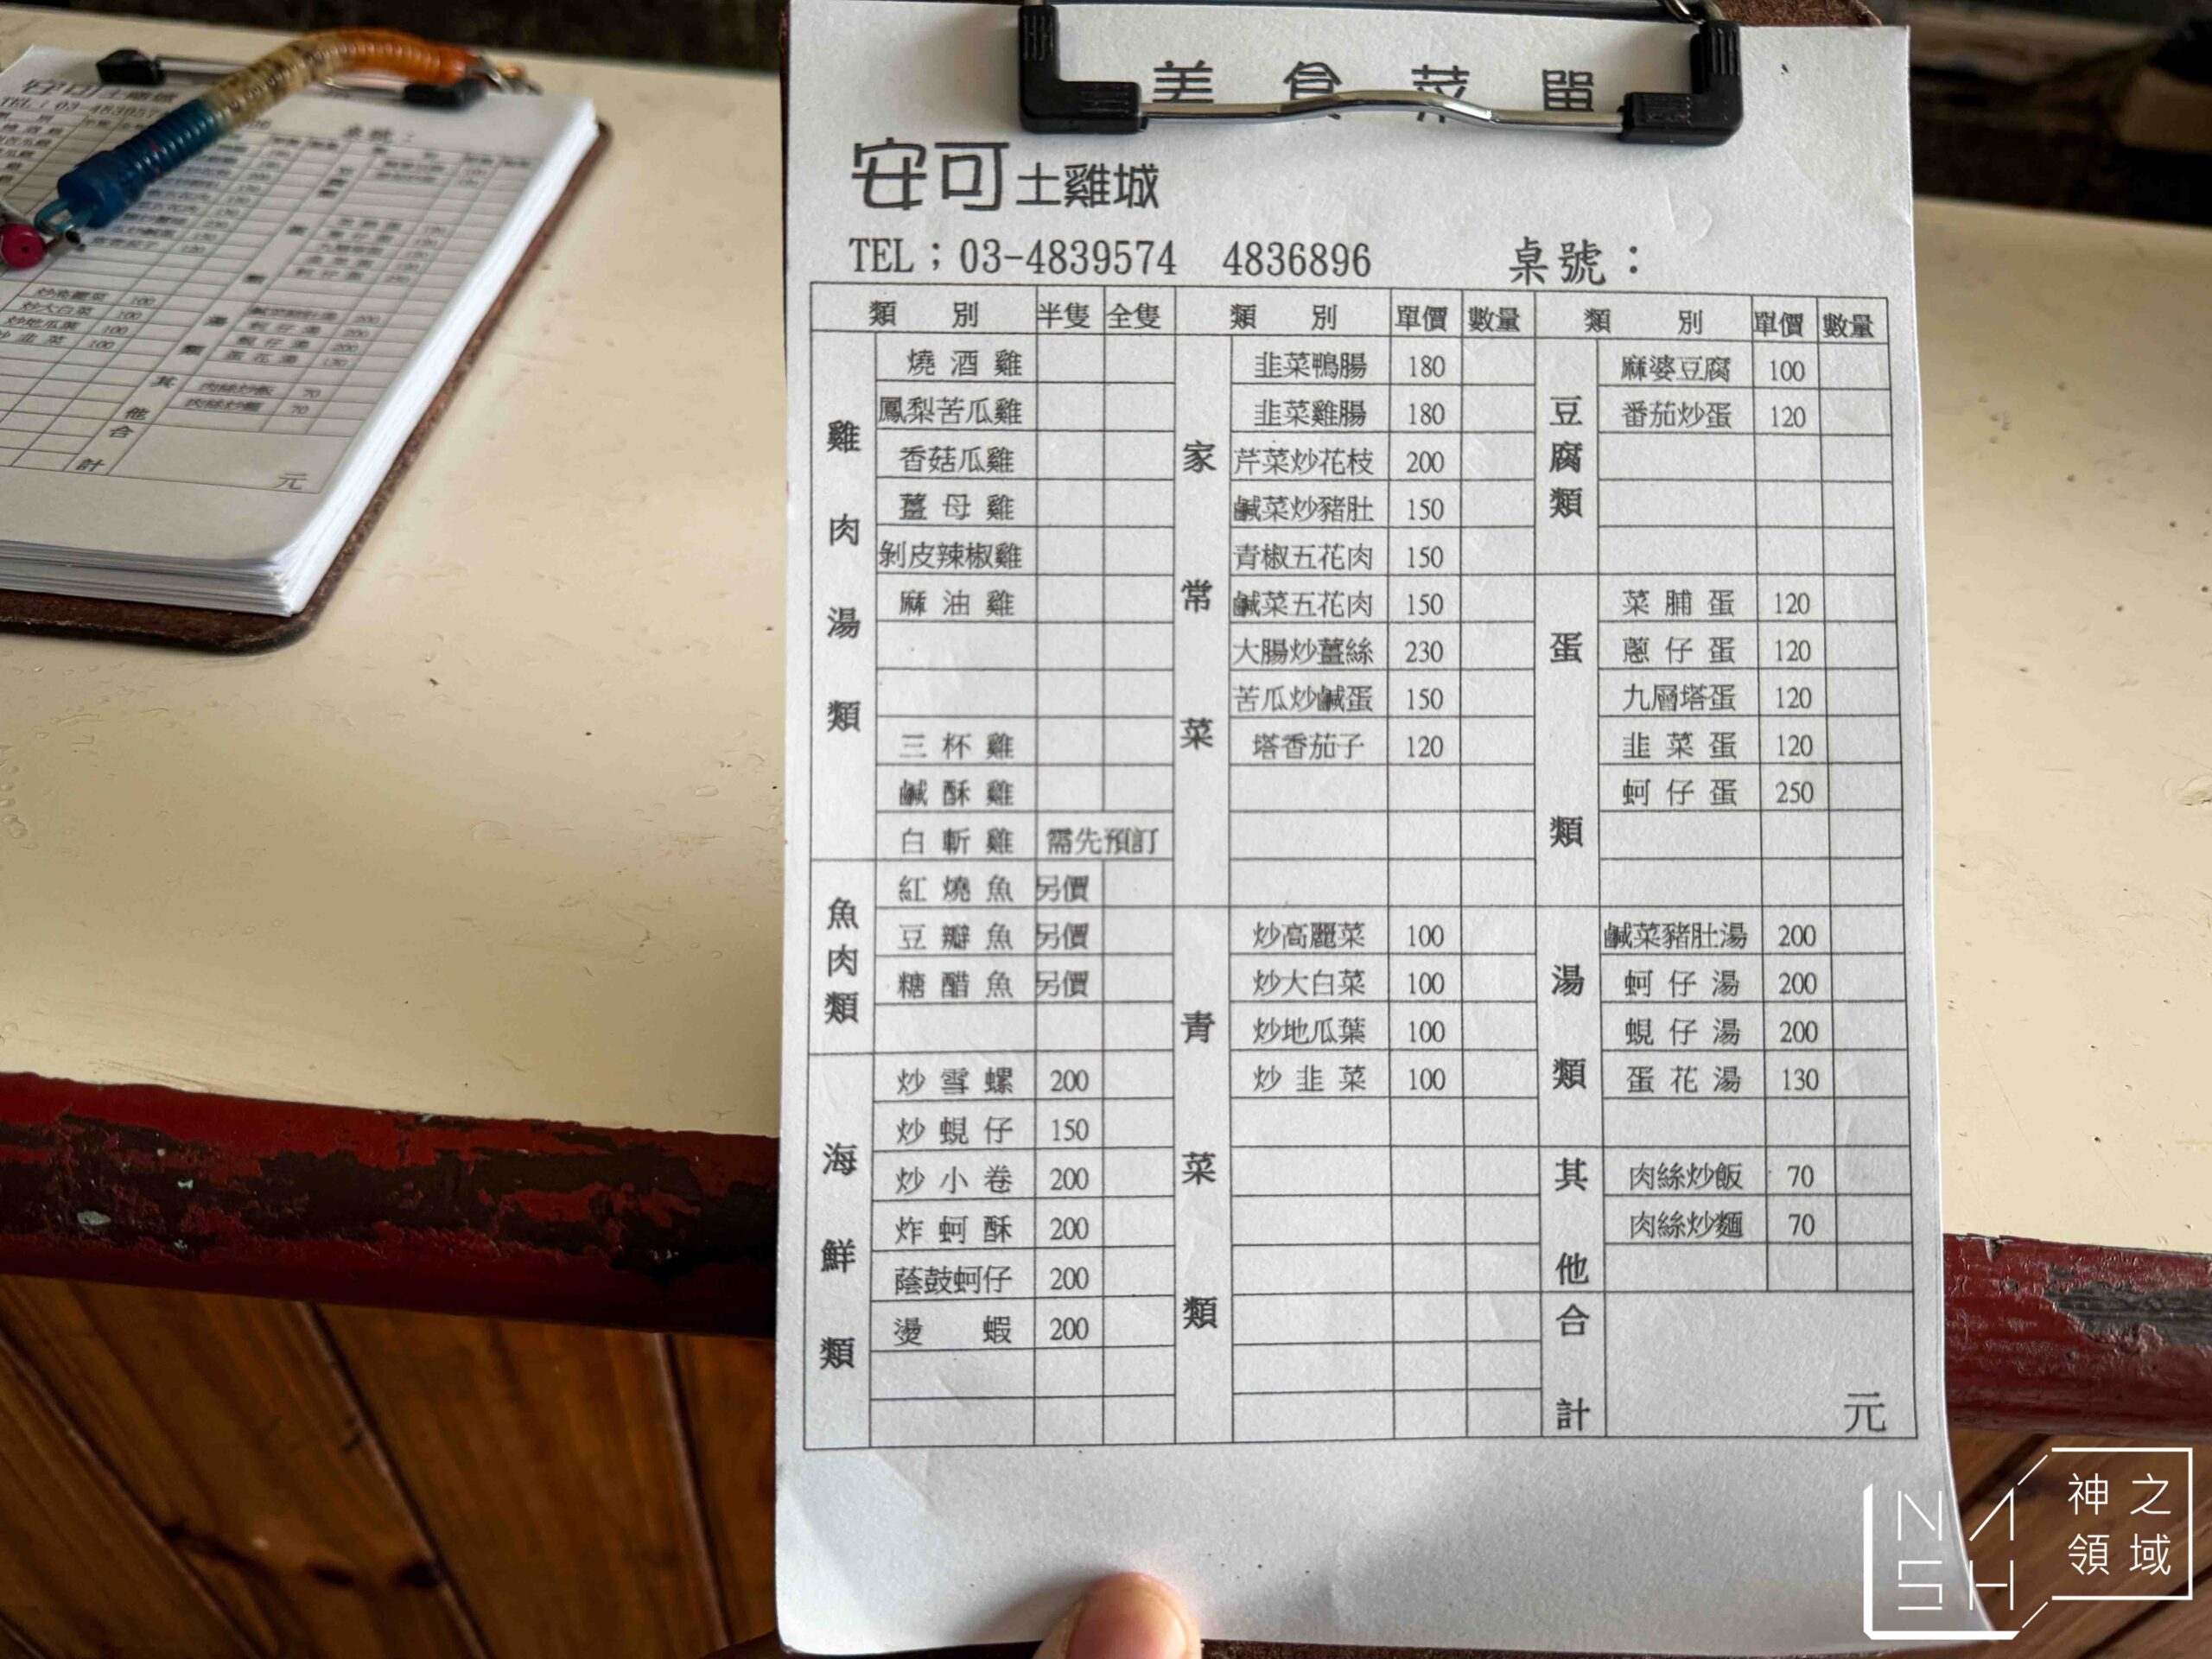 美食菜單
安可土雞城
TEL；03-4839574 4836896 桌號：
類別 半隻 全隻 類別 單價 數量 類別 單價 數量
雞肉湯類
燒酒雞
鳳梨苦瓜雞
香菇瓜雞
薑母雞
剝皮辣椒雞
麻油雞
三杯雞
鹹酥雞
白斬雞 需先預訂
魚肉類
紅燒魚 另價
豆瓣魚 另價
糖醋魚 另價
海鮮類
炒雪螺 200
炒蜆仔 150
炒小卷 200
炸蚵酥 200
蔭鼓蚵仔 200
燙蝦 200
家常菜
韭菜鴨腸 180
韭菜雞腸 180
芹菜炒花枝 200
鹹菜炒豬肚 150
青椒五花肉 150
鹹菜五花肉 150
大腸炒薑絲 230
苦瓜炒鹹蛋 150
塔香茄子 120
青菜類
炒高麗菜 100
炒大白菜 100
炒地瓜葉 100
炒韭菜 100
豆腐類
麻婆豆腐 100
番茄炒蛋 120
蛋類
菜脯蛋 120
蔥仔蛋 120
九層塔蛋 120
韭菜蛋 120
蚵仔蛋 250
湯類
鹹菜豬肚湯 200
蚵仔湯 200
蜆仔湯 200
蛋花湯 130
其他
肉絲炒飯 70
肉絲炒麵 70
合計 元
安可土雞城
TEL：03-483957
桌號：
炒高麗菜 100
炒大白菜 100
炒地瓜葉 100
炒韭菜 100
蚵仔湯 200
蜆仔湯 200
蛋花湯 130
其他
肉絲炒飯 70
肉絲炒麵 70
合計 元
NASH
神之領域